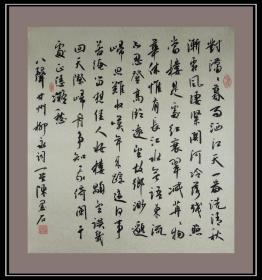 對瀟〻暮雨洒江天一番洗清秋
漸霜風凄緊關河冷落殘照
當樓是處紅衰翠減苒〻物
華休惟有長江水無語東流
不忍登高臨遠望故鄉渺邈
歸思難收嘆年來踪迹何事
苦淹留想佳人妝樓顒望誤幾
回天際識歸舟爭知我倚闌干
處正恁凝愁
八聲甘州柳永詞陳墨石